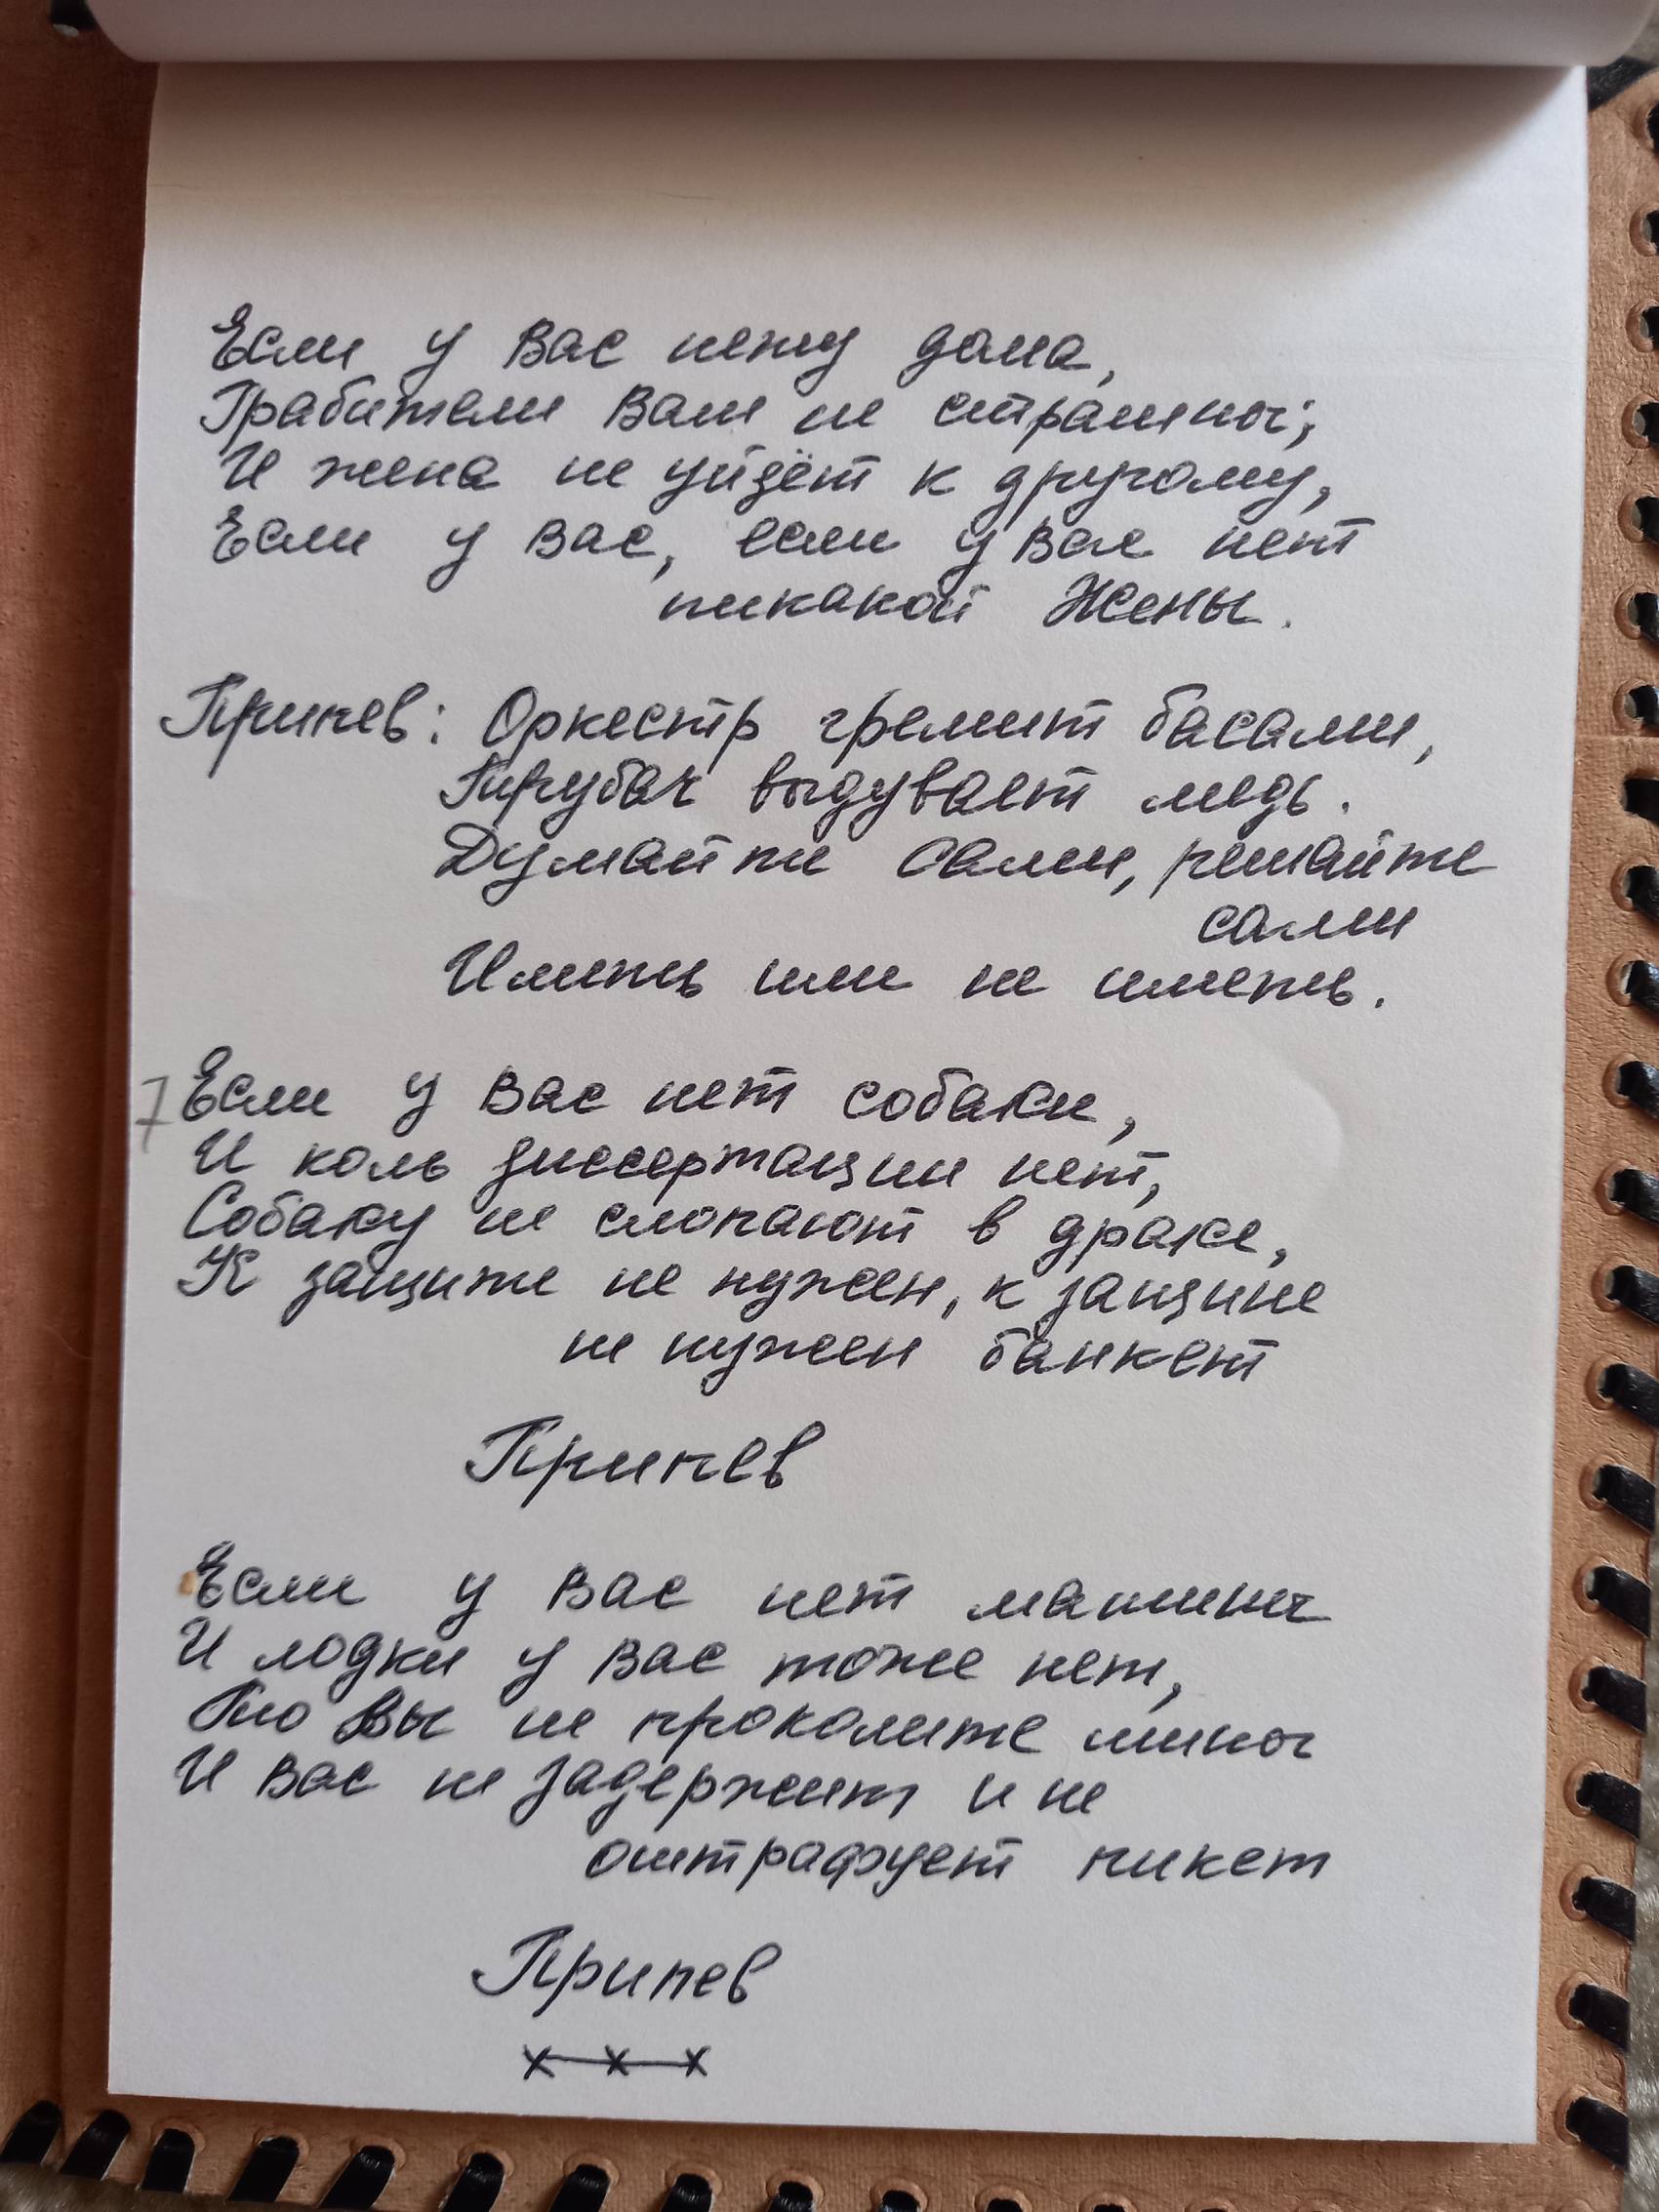 Если у Вас нету дома,
Грабители Вам не страшны;
И жена не уйдёт к другому,
Если у Вас, если у Вас нет
никакой Жены.
Припев: Оркестр гремит басами,
Трубач выдувает медь.
Думайте сами, решайте
сами
Иметь или не иметь.
Если у Вас нет собаки,
И коль диссертации нет,
Собаку не слопают в драке,
К защите не нужен, к защите
не нужен банкет
Припев
Если у Вас нет машины
И лодки у Вас тоже нет,
То Вы не проколите шины
И Вас не задержит и не
оштрафует пикет
Припев
х—х—х